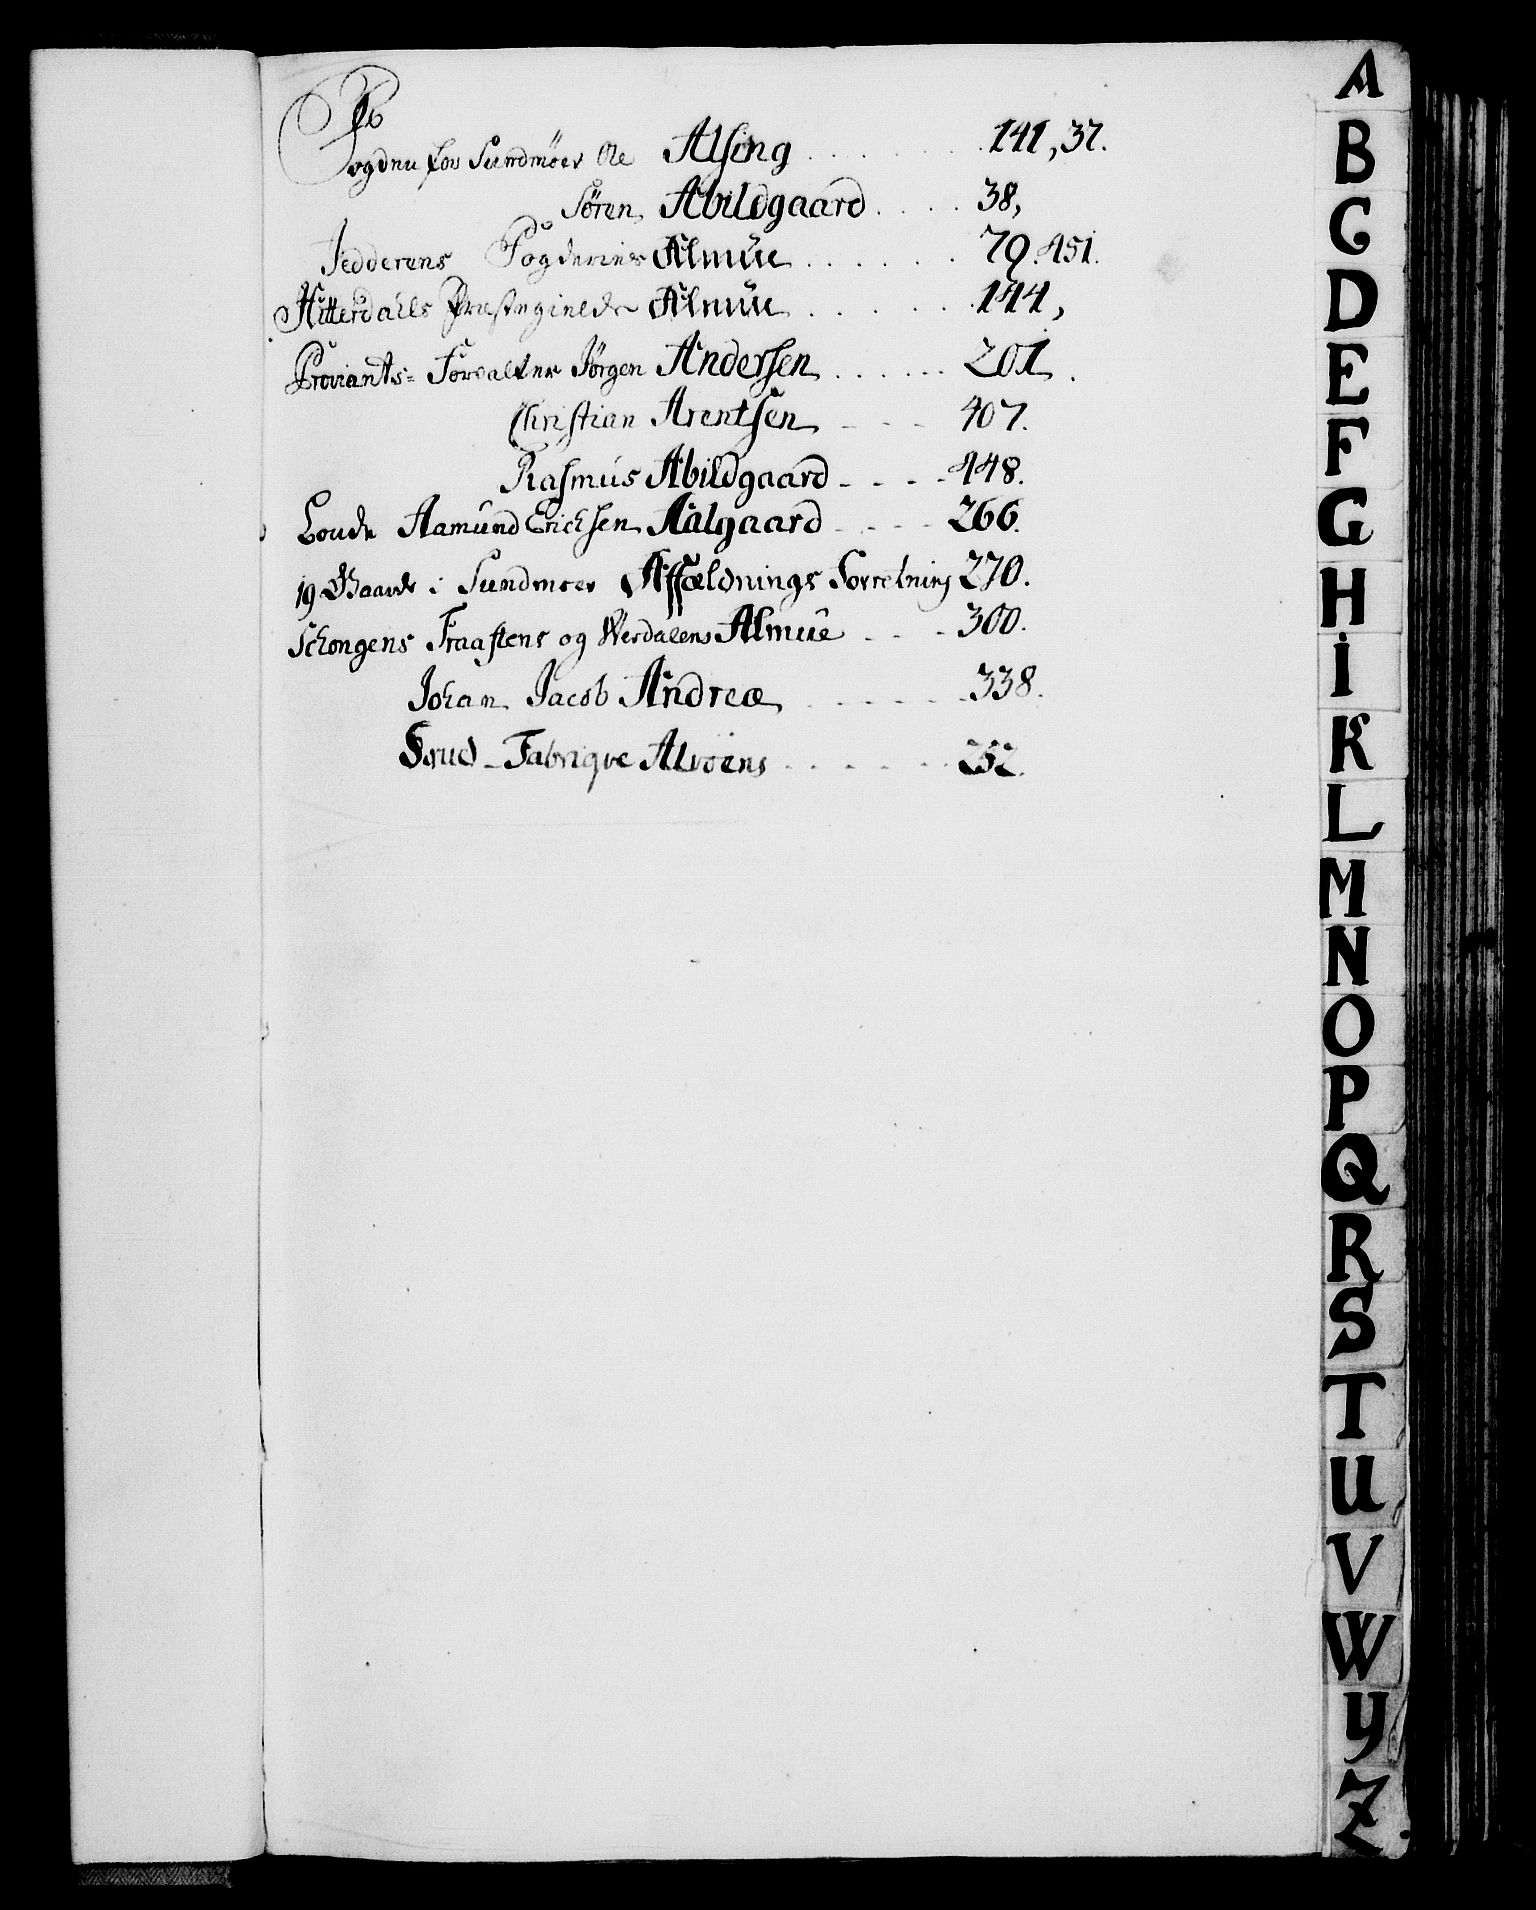 Fogden for Sundmöer Ole Alsing . . . . . . . 141, 37.
Sören Abildgaard . . . . 38,
Jedderens Fogderies Almüe . . . . . . 79. 451.
Hitterdahls Præstegields Almüe . . . . . . 144,
Proviants-Forvalter Jörgen Andersen . . . . . . 201.
Christian Arentsen - - - 407.
Rasmus Abildgaard - - - - 448.
Aamund Erichsen Aalgaard - - - - 266.
19 Gaarde i Sundmoer Affældnings Forretning 270.
Schongens Fraastens og Werdalens Almüe - - - 300.
Johan Jacob Andreæ - - - - - - 338.
Krud-Fabrique Alvöens - - - - - - 252.
A
B
C
D
E
F
G
H
I
K
L
M
N
O
P
Q
R
S
T
U
V
W
Y
Z